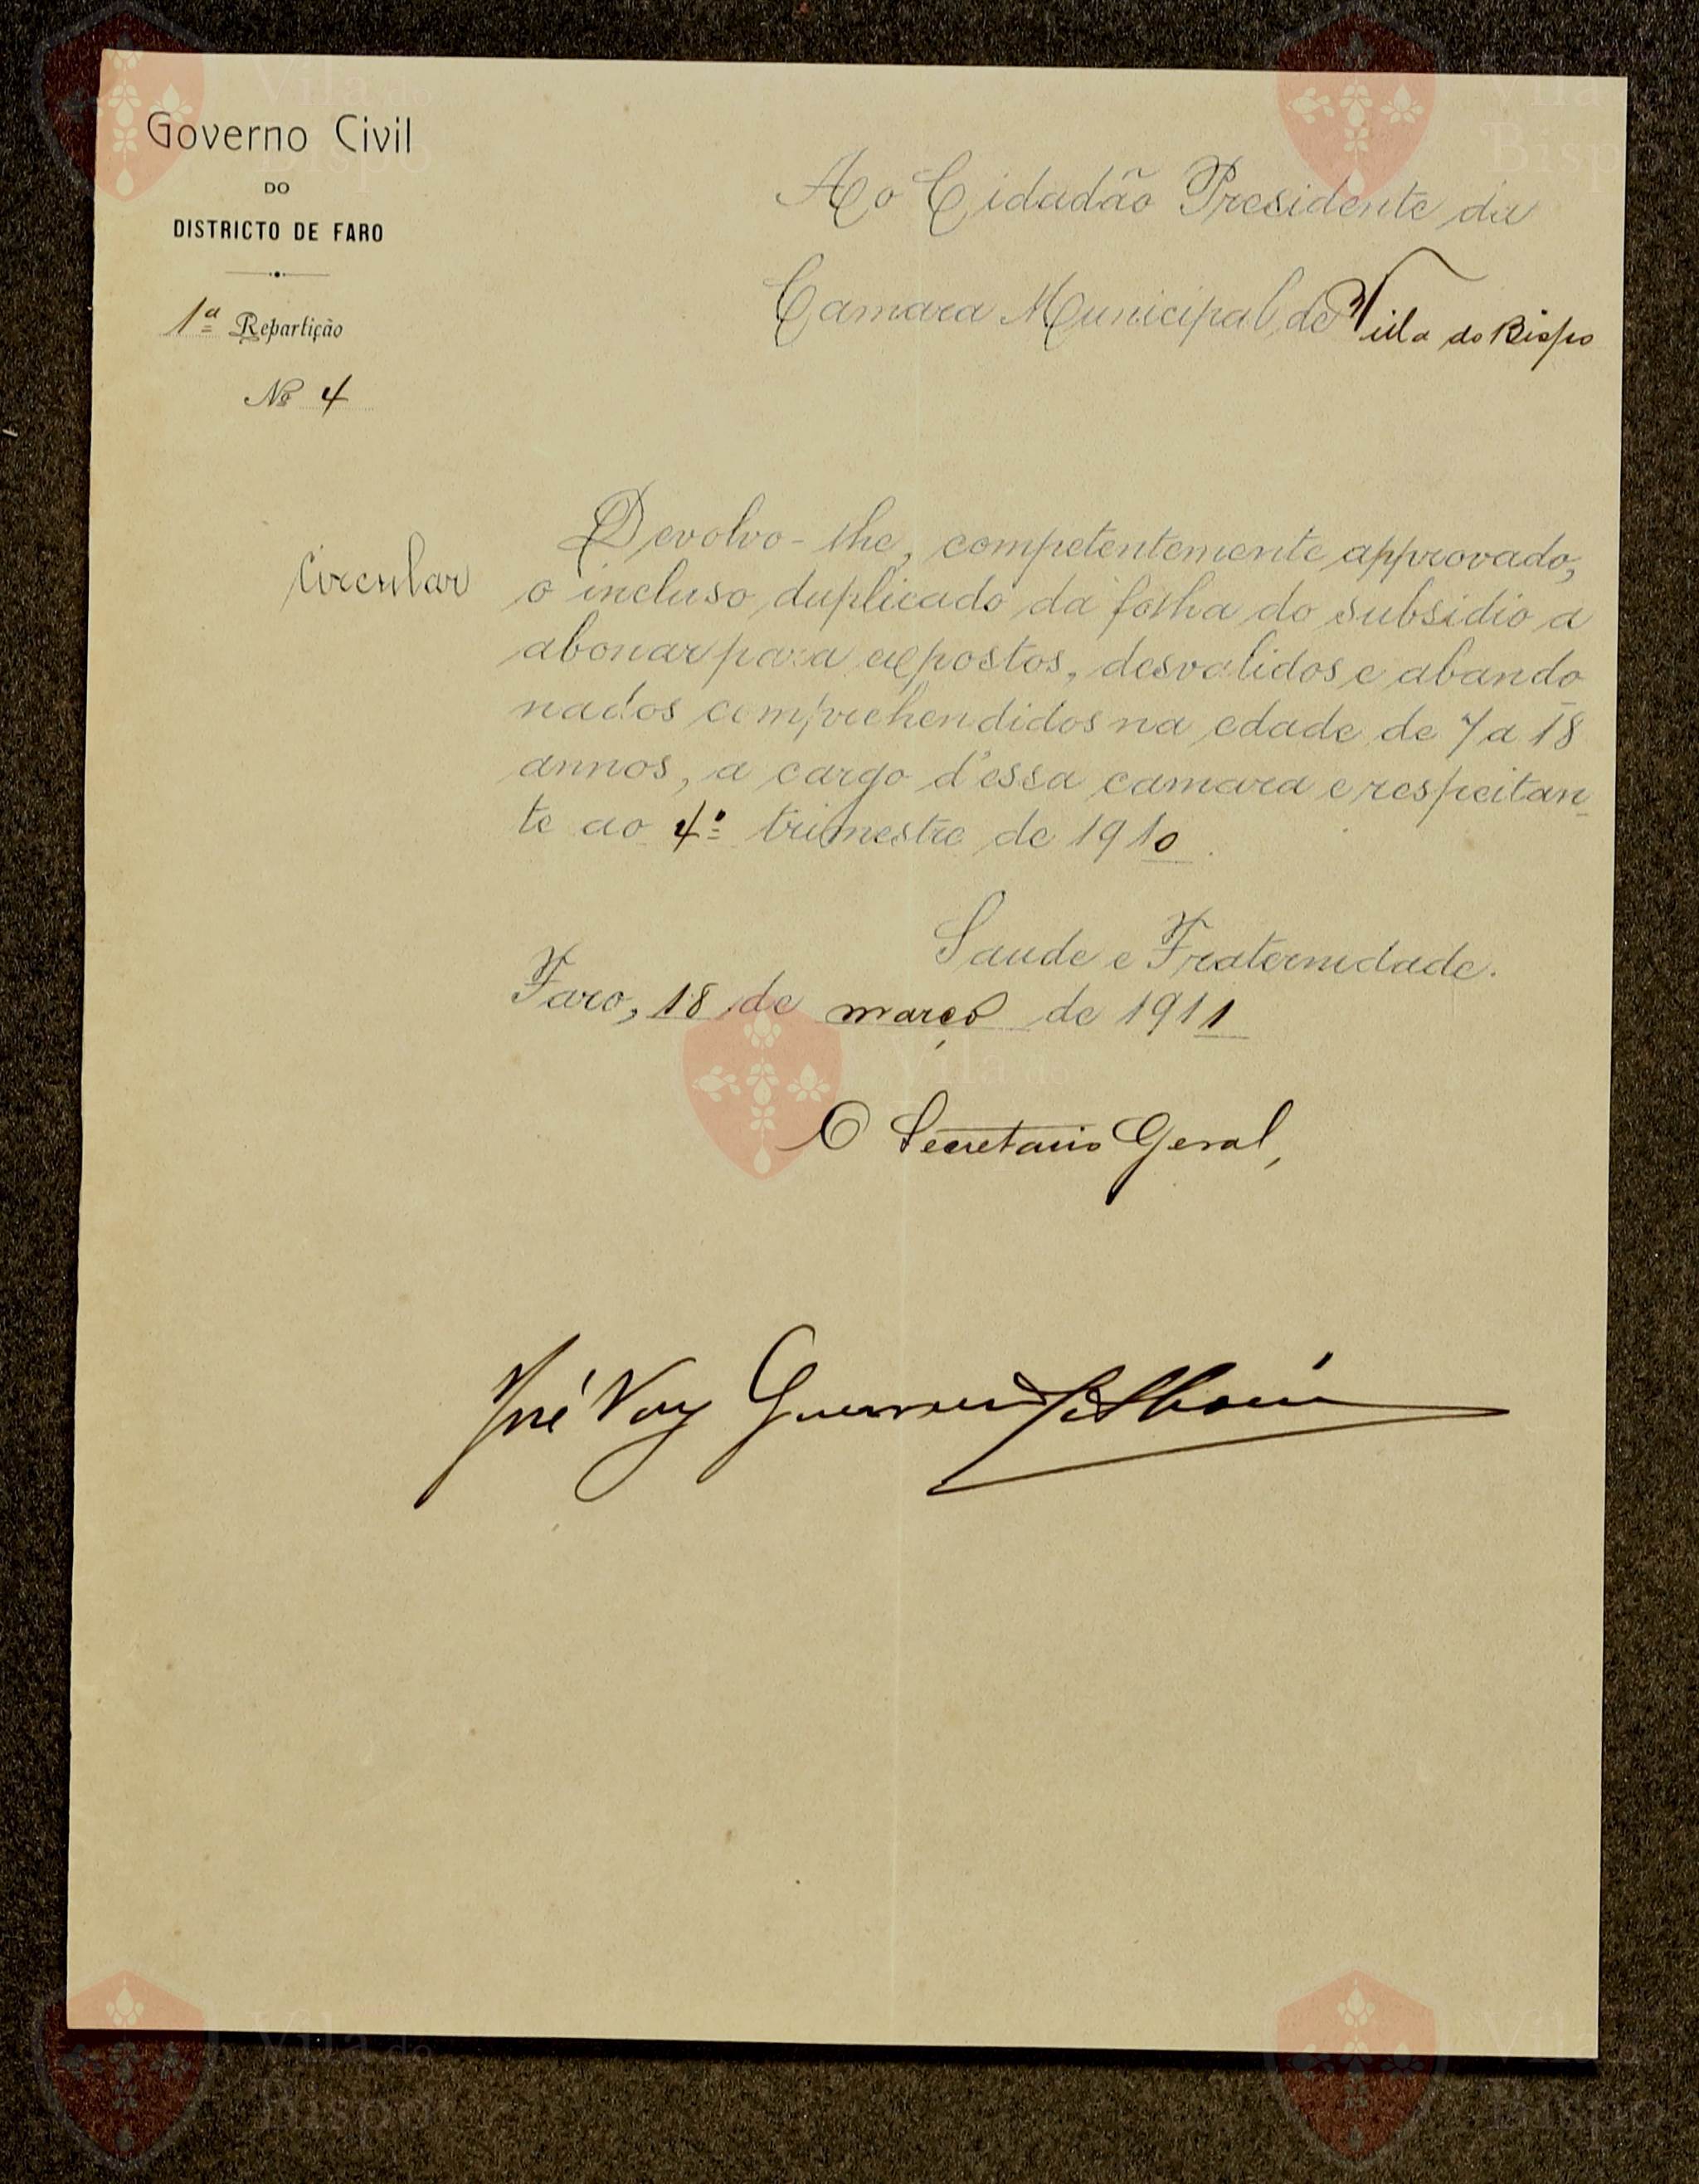 Governo Civil
DO
DISTRICTO DE FARO
1ª Repartição
Nº 4
Ao Cidadão Presidente da
Camara Municipal de Villa do Bispo
Circular
Devolvo-lhe, competentemente approvado,
o incluso duplicado da folha do subsidio a
abonar para expostos, desvalidos e abando
nados comprehendidos na edade de 7 a 18
annos, a cargo d'essa camara e respeitan-
te ao 4º trimestre de 1910.
Saude e Fraternidade.
Faro, 18 de março de 1911
O Secretario Geral,
José Vaz Guerreiro
Vila do
Bispo
Vila
Bispo
Vila do
Vila do
Bispo
Vila
Bispo